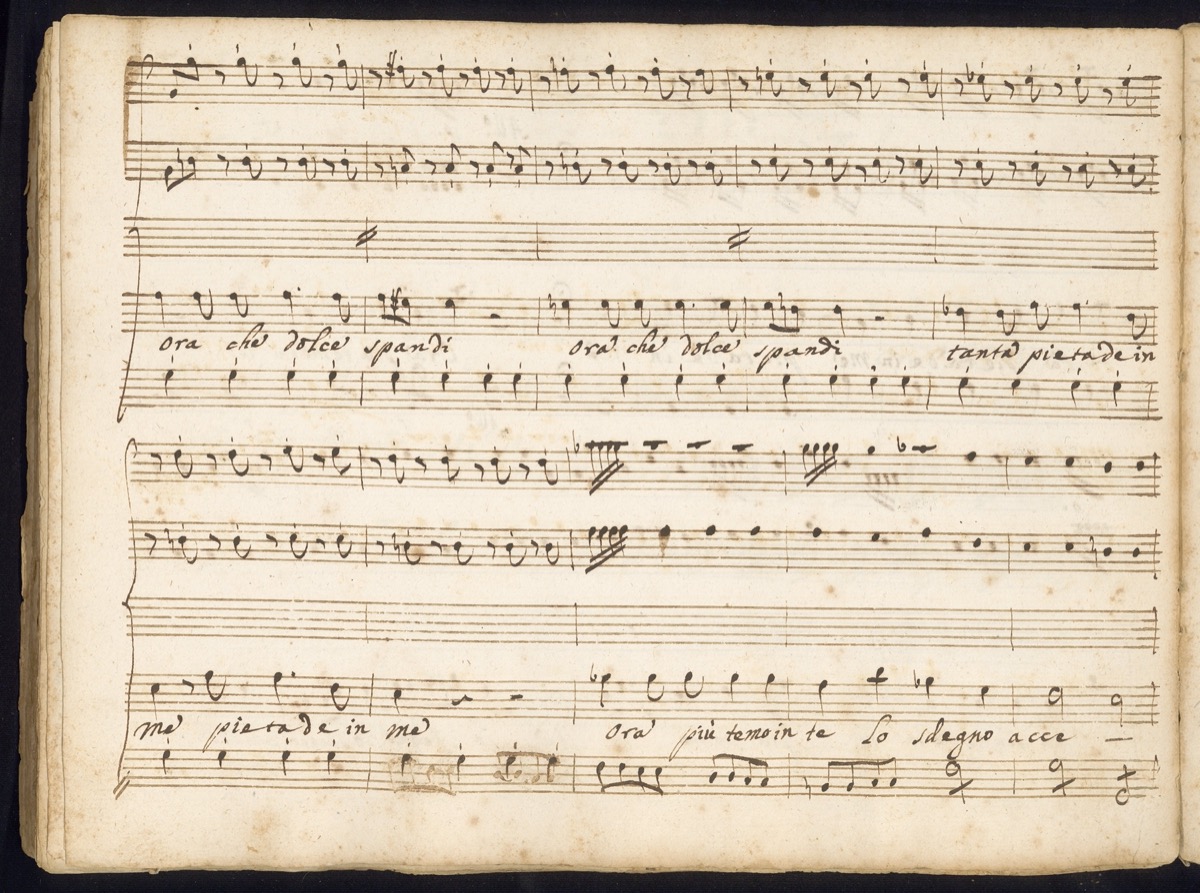 ora che dolce spandi ora che dolce spandi tanta pietade in
me pietade in me ora più temo in te lo sdegno acce —